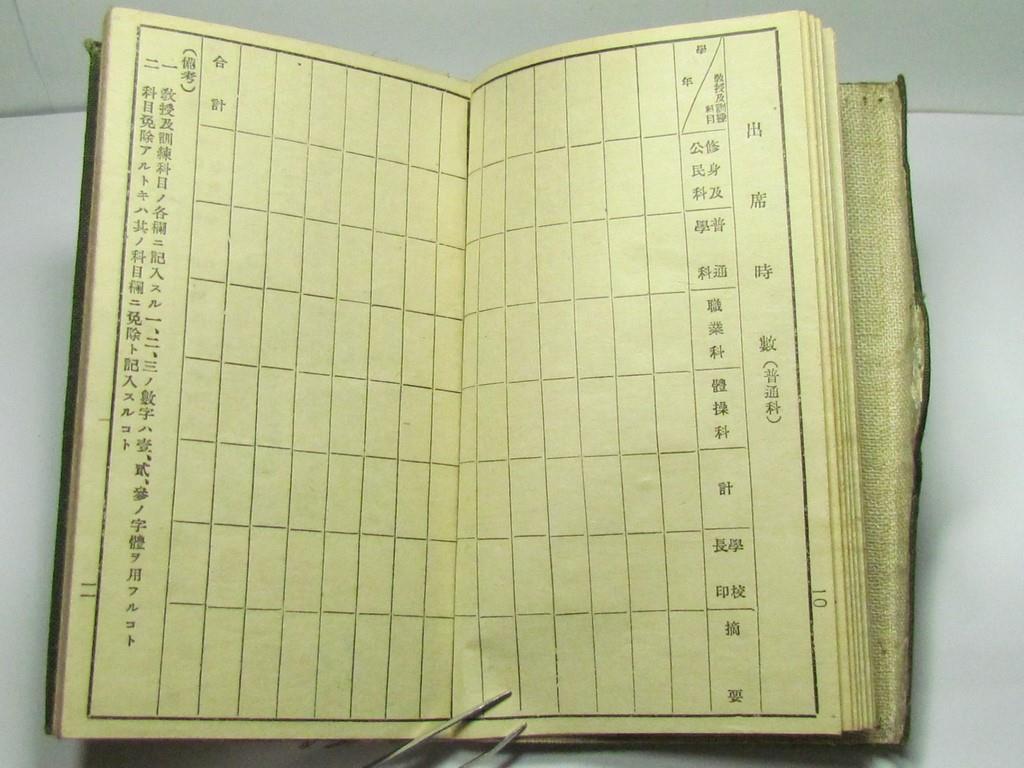 出席時數(普通科)
學年
敎授及訓練科目
修身及公民科
普通學科
職業科
體操科
計
學校長印
摘要
一〇
合計
(備考)
一 敎授及訓練科目ノ各欄ニ記入スル一、二、三ノ數字ハ壹、貳、參ノ字體ヲ用フルコト
二 科目免除アルトキハ其ノ科目欄ニ免除ト記入スルコト
一一